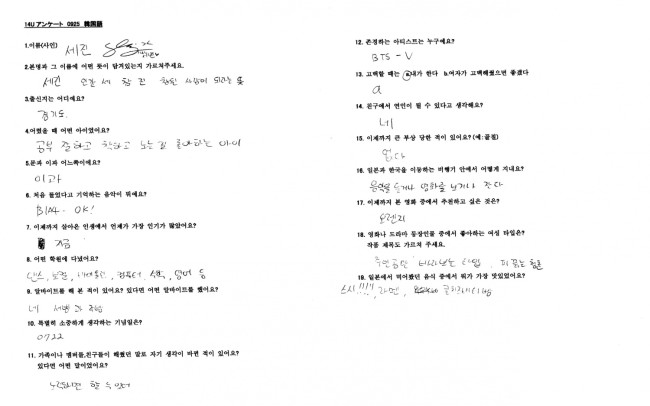 14U アンケート 0925 韓国語
1.이름(사인)
세진
2.본명과 그 이름에 어떤 뜻이 담겨있는지 가르쳐주세요.
세진 인간 세 참 진 참된 사람이 되라는 뜻
3.출신지는 어디에요?
경기도
4.어렸을 때 어떤 아이였어요?
공부 잘하고 착하고 노는걸 좋아하는 아이
5.문과 이과 어느쪽이에요?
이과
6. 처음 들었다고 기억하는 음악이 뭐에요?
B1A4 - OK!
7. 이제까지 살아온 인생에서 언제가 가장 인기가 많았어요?
지금
8. 어떤 학원에 다녔어요?
댄스, 보컬, 바이올린, 컴퓨터, 수학, 영어 등
9. 알바이트를 해 본 적이 있어요? 있다면 어떤 알바이트를 했어요?
네
10. 특별히 소중하게 생각하는 기념일은?
0722
11. 가족이나 멤버들,친구들이 해줬던 말로 자기 생각이 바뀐 적이 있어요?
있다면 어떤 말이었어요?
노력하면 할 수 있어
12. 존경하는 아티스트는 누구에요?
BTS - V
13. 고백할 때는 a내가 한다 b.여자가 고백해줬으면 좋겠다
a
14. 친구에서 연인이 될 수 있다고 생각해요?
네
15. 이제까지 큰 부상 당한 적이 있어요? (예:골절)
없다
16. 일본과 한국을 이동하는 비행기 안에서 어떻게 지내요?
음악을 듣거나 영화를 보거나 잔다
17. 이제까지 본 영화 중에서 추천하고 싶은 것은?
오렌지
18. 영화나 드라마 등장인물 중에서 좋아하는 여성 타입은?
작품 제목도 가르쳐 주세요.
주인공만 바라보는 타입.
19. 일본에서 먹어봤던 음식 중에서 뭐가 가장 맛있었어요?
스시!!!!, 라멘,